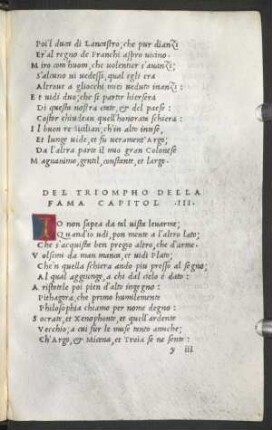 Poi'l duca di Lancastro; che pur dianzi
Er'al regno de Franchi aspro uicino.
Miro com huom, che uolentier s'auanzi;
S'alcuno ui uedessi, qual egli era
Altroue a gliocchi miei ueduto inanzi:
Et uidi duo; che si partir hiersera
Di questa nostra etate, & del paese:
Costor chiudean quell'honorata schiera:
Il buon re Sicilian; ch'in alto intese,
Et lunge uide, et fu ueramente Argo:
Da l'altra parte il mio gran Colonnese
Magnanimo, gentil, constante, et largo.
DEL TRIOMPHO DELLA
FAMA CAPITOL .III.
IO non sapea da tal uista leuarme;
Quand'io udi, pon mente a l'altro lato;
Che s'acquista ben pregio altro, che d'arme.
Volsimi da man manca, et uidi Plato;
Che'n quella schiera ando piu presso al segno;
Al qual aggiunge, a chi dal cielo è dato:
Aristotele poi pien d'alto ingegno:
Pithagora, che primo humilemente
Philosophia chiamo per nome degno:
Socrate, et Xenophonte, et quell'ardente
Vecchio; a cui fur le muse tanto amiche;
Ch'Argo, & Micena, et Troia se ne sente:
y iii